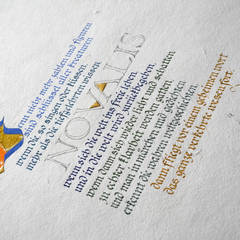 enn nicht mehr zahlen und figuren
sind schlüssel aller kreaturen
wenn die, so singen oder küssen,
mehr als die tiefgelehrten wissen
NOVALIS
wenn sich die welt ins freie leben
und in die welt wird zurückbegeben,
wenn dann sich wieder licht und schatten
zu echter klarheit werden gatten
und man in märchen und gedichten
erkennt die wahren weltgeschichten
dann fliegt vor einem geheimen wort
das ganze verkehrte wesen fort.